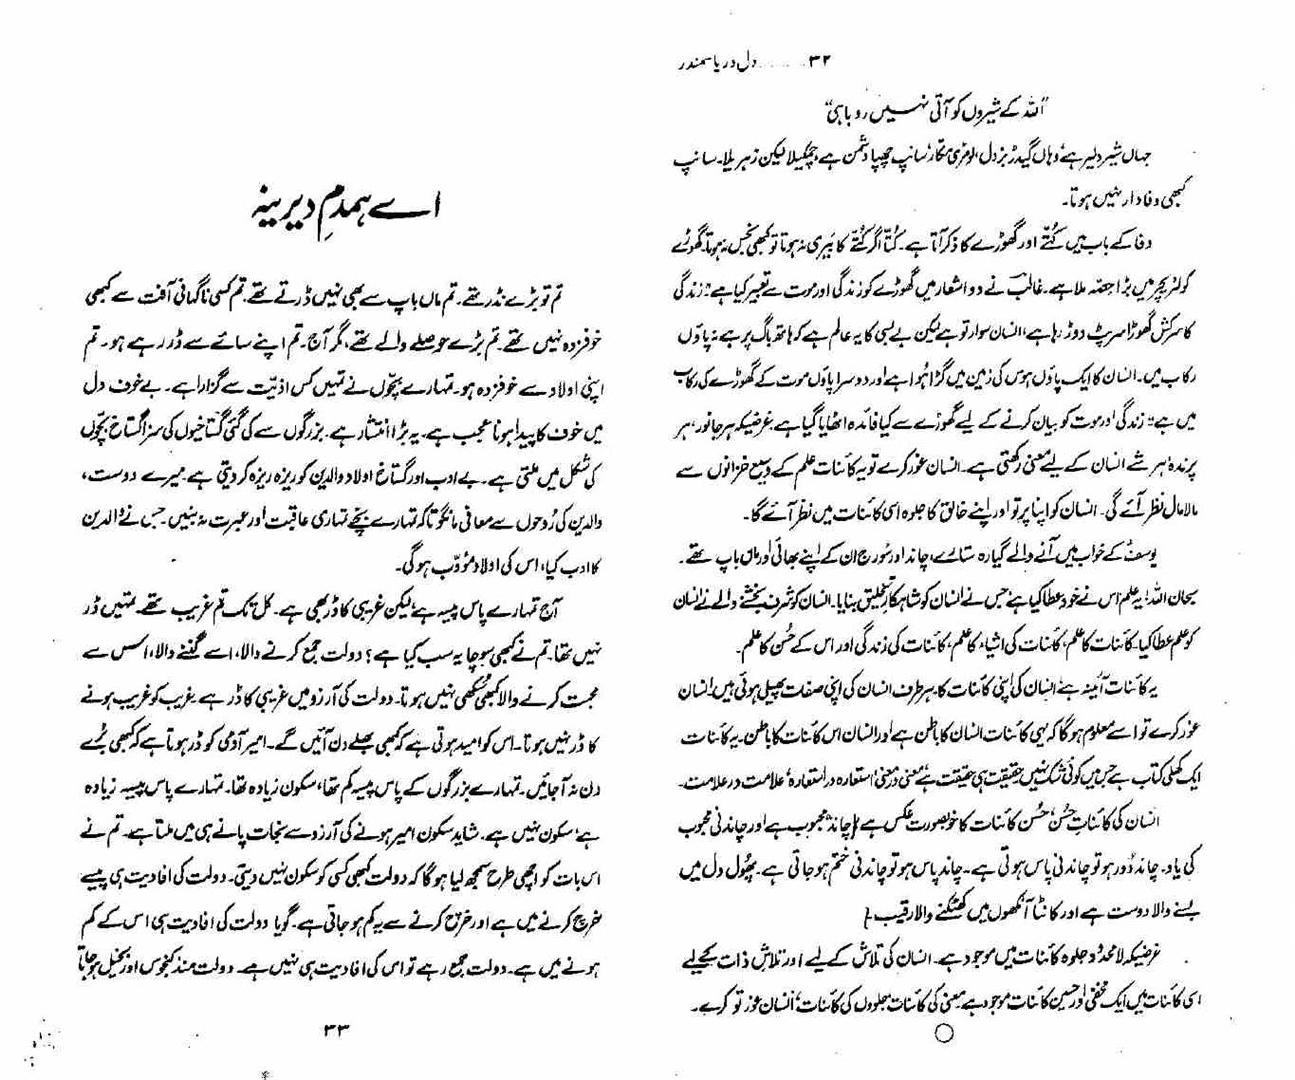 ۳۲ ........ دل دریا سمندر
"اللہ کے شیروں کو آتی نہیں روباہی"
جہاں شیر دلیر ہے، وہاں گیدڑ بزدل، لومڑی مکار، سانپ چھپا دشمن ہے، چمکیلا لیکن زہریلا۔ سانپ
کبھی وفادار نہیں ہوتا۔
وفا کے باب میں کُتّے اور گھوڑے کا ذکر آتا ہے۔ کُتّا اگر کُتّے کا بَیری نہ ہوتا تو کبھی نجس نہ ہوتا۔ گھوڑے
کو لٹریچر میں بڑا حصّہ ملا ہے۔ غالبؔ نے دو اشعار میں گھوڑے کو زندگی اور موت سے تعبیر کیا ہے: "زندگی
کا سرکش گھوڑا سرپٹ دوڑ رہا ہے، انسان سوار تو ہے لیکن بے بسی کا یہ عالم ہے کہ ہاتھ باگ پر ہے نہ پاؤں
رکاب میں۔ انسان کا ایک پاؤں ہوس کی زمین میں گڑا ہُوا ہے اور دوسرا پاؤں موت کے گھوڑے کی رکاب
میں ہے"۔ زندگی اور موت کو بیان کرنے کے لیے گھوڑے سے کیا فائدہ اٹھایا گیا ہے، غرضیکہ ہر جانور، ہر
پرندہ، ہر شے انسان کے لیے معنی رکھتی ہے۔ انسان غور کرے تو یہ کائنات علم کے وسیع خزانوں سے
مالا مال نظر آئے گی۔ انسان کو اپنا پرتو اور اپنے خالق کا جلوہ اسی کائنات میں نظر آئے گا۔
یوسفؑ کے خواب میں آنے والے گیارہ ستارے، چاند اور سُورج ان کے اپنے بھائی اور ماں باپ تھے۔
سبحان اللہ! یہ علم اس نے خود عطا کیا ہے جس نے انسان کو شاہکارِ تخلیق بنایا۔ انسان کو شرف بخشنے والے نے انسان
کو علم عطا کیا۔ کائنات کا علم، کائنات کی اشیاء کا علم، کائنات کی زندگی اور اس کے حُسن کا علم۔
یہ کائنات آئینہ ہے انسان کی اپنی کائنات کا۔ ہر طرف انسان کی اپنی صفات پھیلی ہوئی ہیں۔ انسان
غور کرے تو اسے معلوم ہوگا کہ یہی کائنات انسان کا باطن ہے اور انسان اس کائنات کا باطن۔ یہ کائنات
ایک کھلی کتاب ہے جس میں کوئی شک نہیں۔ حقیقت ہی حقیقت ہے، معنی در معنی، استعارہ در استعارہ، علامت در علامت۔
انسان کی کائناتِ حُسن، حُسنِ کائنات کا خوبصورت عکس ہے۔ چاند محبوب ہے اور چاندنی محبوب
کی یاد۔ چاند دُور ہو تو چاندنی پاس ہوتی ہے۔ چاند پاس ہو تو چاندنی ختم ہو جاتی ہے۔ پھُول دل میں
بسنے والا دوست ہے اور کانٹا آنکھوں میں کھٹکنے والا رقیب۔
غرضیکہ لامحدُود جلوہ کائنات میں موجود ہے۔ انسان کی تلاش کے لیے اور تلاشِ ذات کیلئے
اسی کائنات میں ایک مخفی اور حسین کائنات موجود ہے۔ معنی کی کائنات، جلووں کی کائنات، انسان غور تو کرے۔
اے ہمدمِ دیرینہ
تم تو بڑے نڈر تھے۔ تم ماں باپ سے بھی نہیں ڈرتے تھے۔ تم کسی ناگہانی آفت سے کبھی
خوفزدہ نہیں تھے۔ تم بڑے حوصلے والے تھے، مگر آج۔ تم اپنے سائے سے ڈر رہے ہو۔ تم
اپنی اولاد سے خوفزدہ ہو۔ تمہارے بچّوں نے تمہیں کس اذیّت سے گزارا ہے۔ بے خوف دل
میں خوف کا پیدا ہونا عجب ہے۔ یہ بڑا انتشار ہے۔ بزرگوں سے کی گئی گستاخیوں کی سزا گستاخ بچّوں
کی شکل میں ملتی ہے۔ بے ادب اور گستاخ اولاد والدین کو ریزہ ریزہ کر دیتی ہے۔ میرے دوست،
والدین کی رُوحوں سے معافی مانگو تاکہ تمہارے بچّے تمہاری عاقبت اور عبرت نہ بنیں۔ جس نے والدین
کا ادب کیا، اس کی اولاد مؤدّب ہوگی۔
آج تمہارے پاس پیسہ ہے، لیکن غریبی کا ڈر بھی ہے۔ کل تک تم غریب تھے۔ تمہیں ڈر
نہیں تھا۔ تم نے کبھی سوچا یہ سب کیا ہے؟ دولت جمع کرنے والا، اسے گننے والا، اس سے
محبت کرنے والا کبھی سُکھی نہیں ہوتا۔ دولت کی آرزو میں غریبی کا ڈر ہے۔ غریب کو غریب ہونے
کا ڈر نہیں ہوتا۔ اس کو امید ہوتی ہے کہ کبھی بھلے دن آئیں گے۔ امیر آدمی کو ڈر ہوتا ہے کہ کبھی بُرے
دن نہ آجائیں۔ تمہارے بزرگوں کے پاس پیسہ کم تھا، سکون زیادہ تھا۔ تمہارے پاس پیسہ زیادہ
ہے، سکون نہیں ہے۔ شاید سکون امیر ہونے کی آرزو سے نجات پانے ہی میں ملتا ہے۔ تم نے
اس بات کو اچھی طرح سمجھ لیا ہوگا کہ دولت کبھی کسی کو سکون نہیں دیتی۔ دولت کی افادیت ہی پیسے
خرچ کرنے میں ہے اور خرچ کرنے سے یہ کم ہو جاتی ہے۔ گویا دولت کی افادیت ہی اس کے کم
ہونے میں ہے۔ دولت جمع رہے تو اس کی افادیت ہی نہیں ہے۔ دولت مند کنجوس اور بخیل ہو جاتا
۳۳